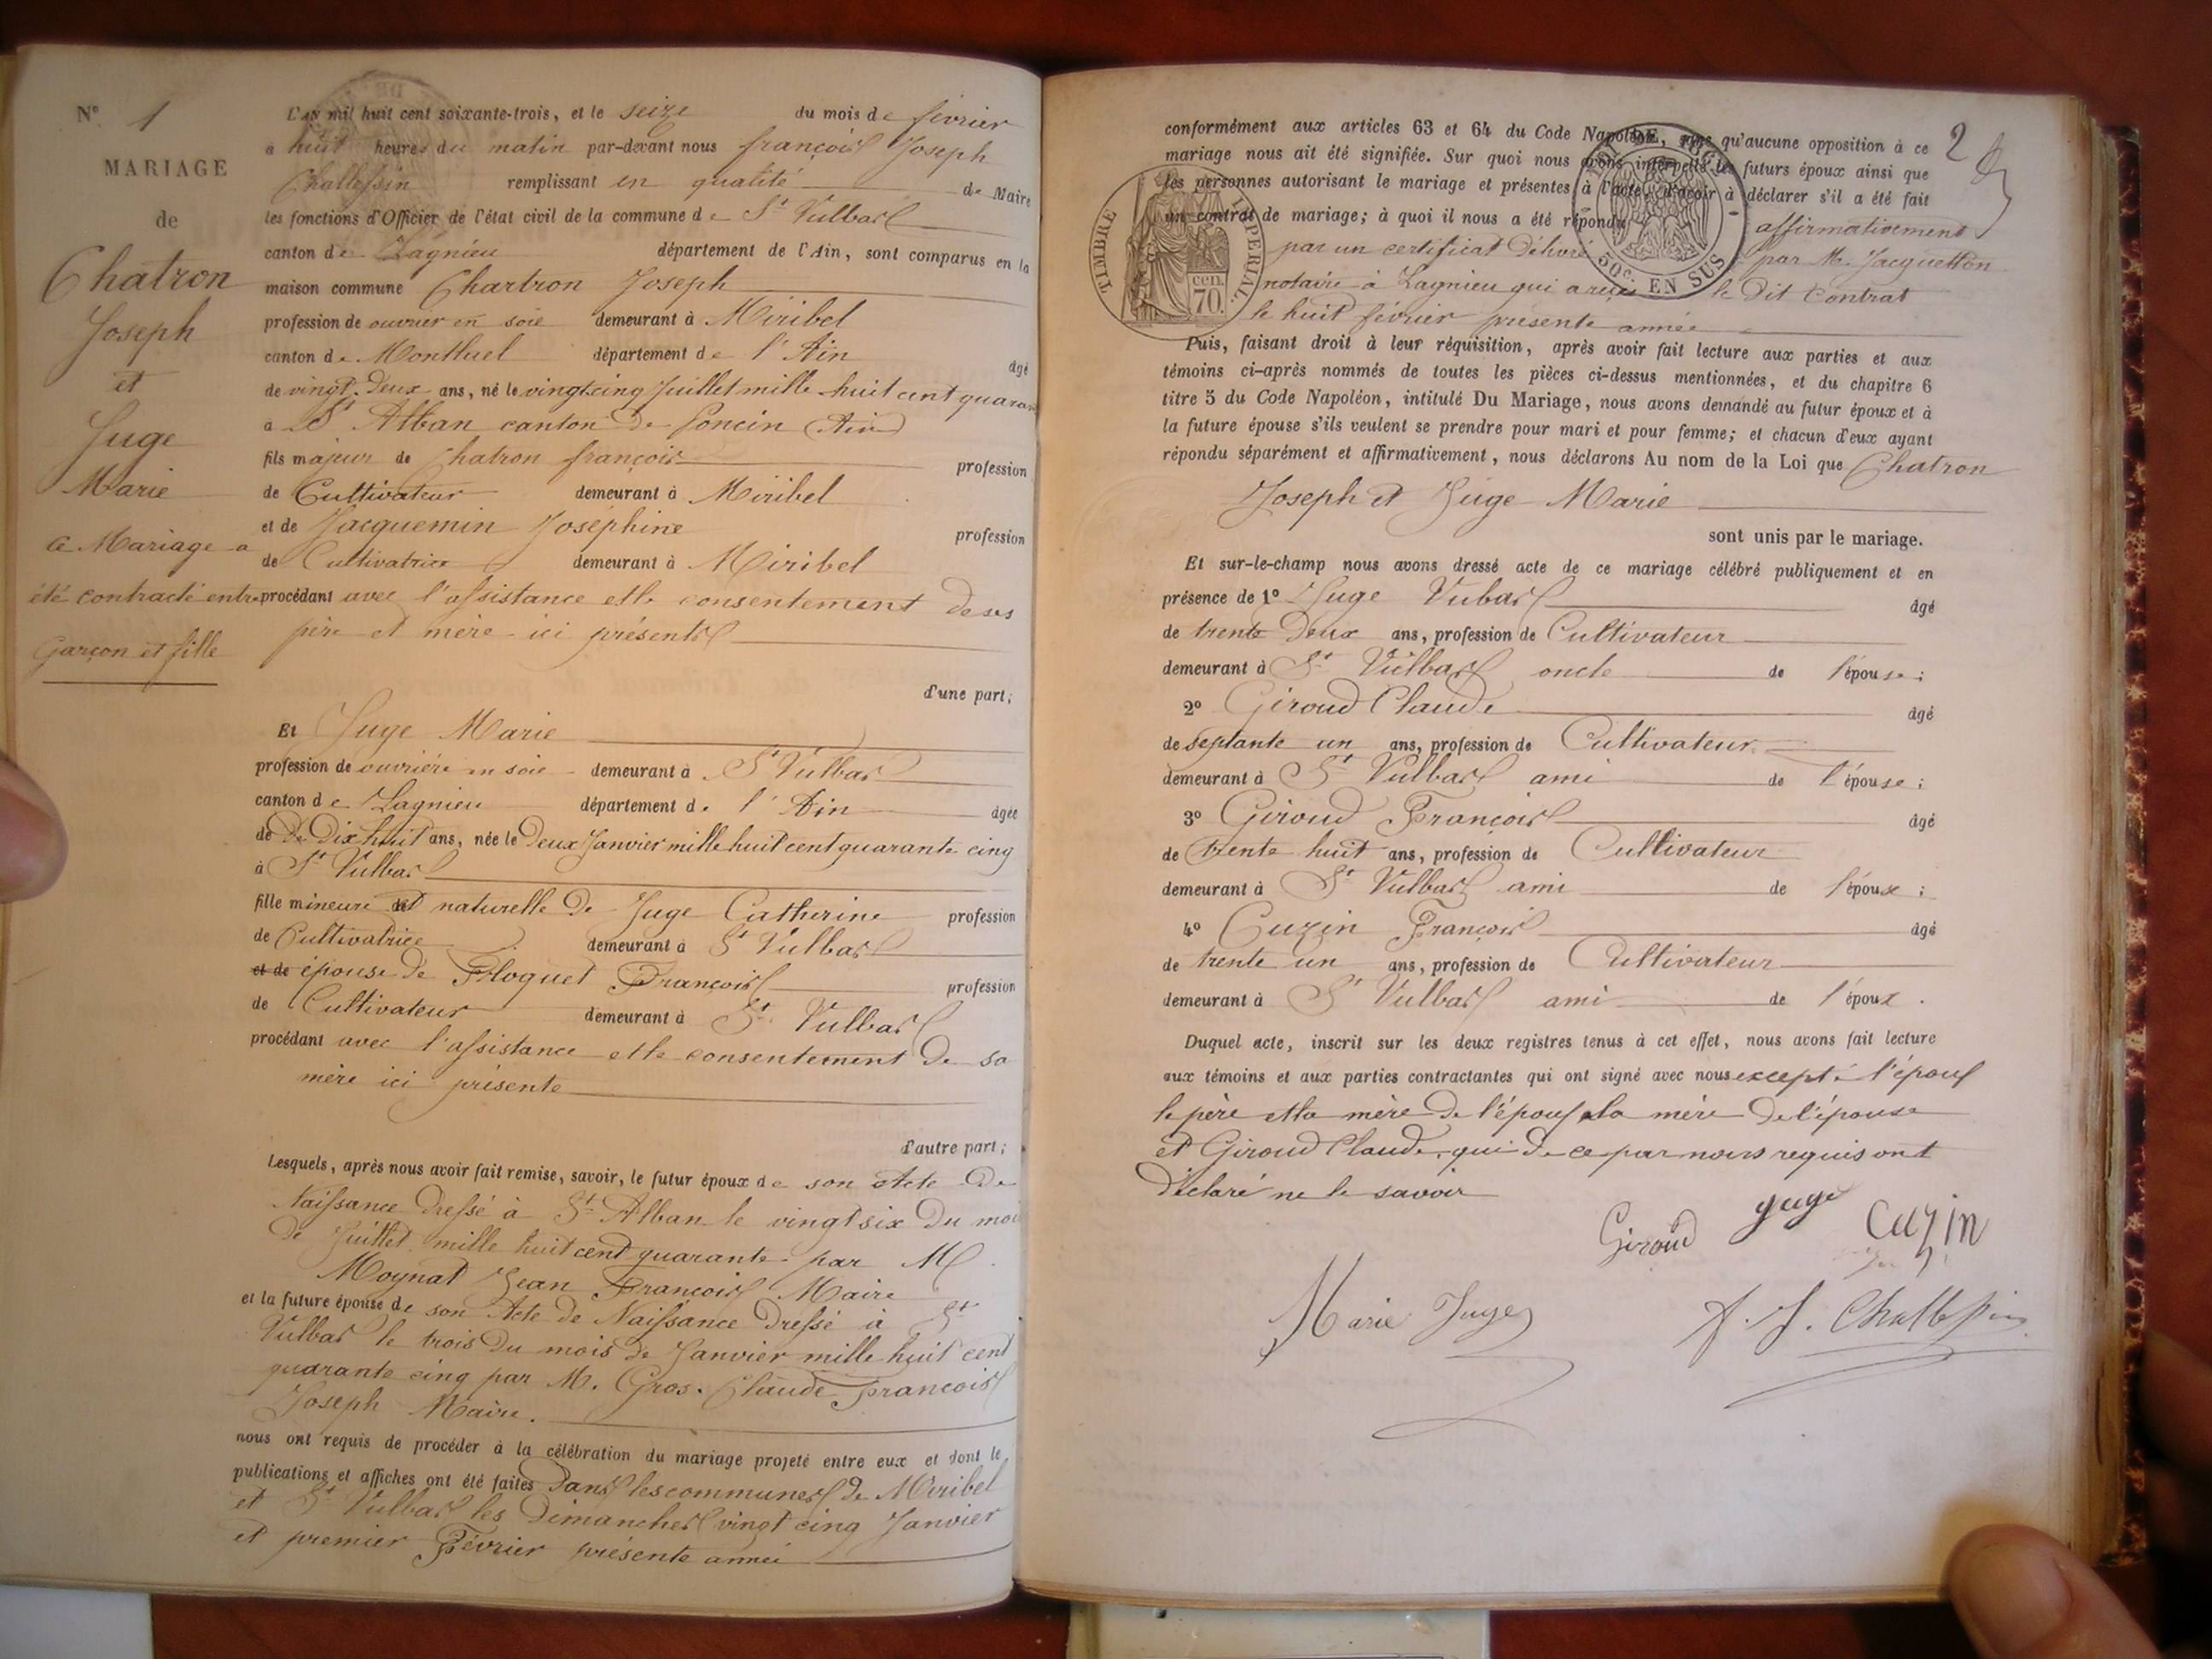 N° 1
MARIAGE
de
Chatron
Joseph
et
Juge
Marie
Ce Mariage a
été contracté entre
Garçon et fille
L'an mil huit cent soixante-trois, et le seize du mois de février
a huit heures du matin par-devant nous françois Joseph
Challessin remplissant en qualité de Maire
les fonctions d'Officier de l'état civil de la commune de St Vulbas
canton de Lagnieu département de l'Ain, sont comparus en la
maison commune Chartron Joseph
profession de ouvrier en soie demeurant à Miribel
canton de Montluel département de l'Ain âgé
de vingt-deux ans, né le vingt cinq Juillet mille huit cent quaran
a St Alban canton de Poncin (Ain)
fils majeur de Chatron françois profession
de Cultivateur demeurant à Miribel
et de Jacquemin Joséphine profession
de Cultivatrice demeurant à Miribel
procédant avec l'assistance et le consentement de ses
père et mère ici présents
d'une part;
Et Juge Marie
profession de ouvrière en soie demeurant à St Vulbas
canton de Lagnieu département de l'Ain âgée
de De Dix huit ans, née le Deux Janvier mille huit cent quarante cinq
à St Vulbas
fille mineure et naturelle de Juge Catherine profession
de Cultivatrice demeurant à St Vulbas
et de épouse de Floquet François profession
de Cultivateur demeurant à St Vulbas
procédant avec l'assistance et le consentement De sa
mère ici présente
d'autre part;
Lesquels, après nous avoir fait remise, savoir, le futur époux de son Acte De
Naissance dressé à St Alban le vingt six Du mois
De Juillet mille huit cent quarante par M
Moynat Jean François Maire
et la future épouse de son Acte de Naissance Dressé à St
Vulbas le trois Du mois De Janvier mille huit cent
quarante cinq par M. Gros. Claude François
Joseph Maire.
nous ont requis de procéder à la célébration du mariage projeté entre eux et dont le
publications et affiches ont été faites Dans les communes de Miribel
et St Vulbas les Dimanches vingt cinq Janvier
et premier Février présente année
2
conformément aux articles 63 et 64 du Code Napoléon, sans qu'aucune opposition à ce
mariage nous ait été signifiée. Sur quoi nous avons interpellé les futurs époux ainsi que
les personnes autorisant le mariage et présentes à l'acte d'avoir à déclarer s'il a été fait
un contrat de mariage; à quoi il nous a été répondu affirmativement
par un certificat Délivré par Me Jacquetton
notaire à Lagnieu qui a reçu le Dit Contrat
le huit février présente année
TIMBRE IMPERIAL
cen. 70.
50c. EN SUS
Puis, faisant droit à leur réquisition, après avoir fait lecture aux parties et aux
témoins ci-après nommés de toutes les pièces ci-dessus mentionnées, et du chapitre 6
titre 5 du Code Napoléon, intitulé Du Mariage, nous avons demandé au futur époux et à
la future épouse s'ils veulent se prendre pour mari et pour femme; et chacun d'eux ayant
répondu séparément et affirmativement, nous déclarons Au nom de la Loi que Chatron
Joseph et Juge Marie
sont unis par le mariage.
Et sur-le-champ nous avons dressé acte de ce mariage célébré publiquement et en
présence de 1° Juge Vubas âgé
de trente Deux ans, profession de Cultivateur
demeurant à St Vulbas oncle de l'épouse;
2° Giroud Claude âgé
de septante un ans, profession de Cultivateur
demeurant à St Vulbas ami de l'épouse;
3° Giroud François âgé
de trente huit ans, profession de Cultivateur
demeurant à St Vulbas ami de l'époux;
4° Cuzin François âgé
de trente un ans, profession de Cultivateur
demeurant à St Vulbas ami de l'époux.
Duquel acte, inscrit sur les deux registres tenus à cet effet, nous avons fait lecture
aux témoins et aux parties contractantes qui ont signé avec nous excepté l'époux
le père et la mère De l'époux, la mère De l'épouse
et Giroud Claude, qui De ce par nous requis ont
Déclaré ne le savoir
Giroud juge Cuzin
Marie Juge F. J. Challessin